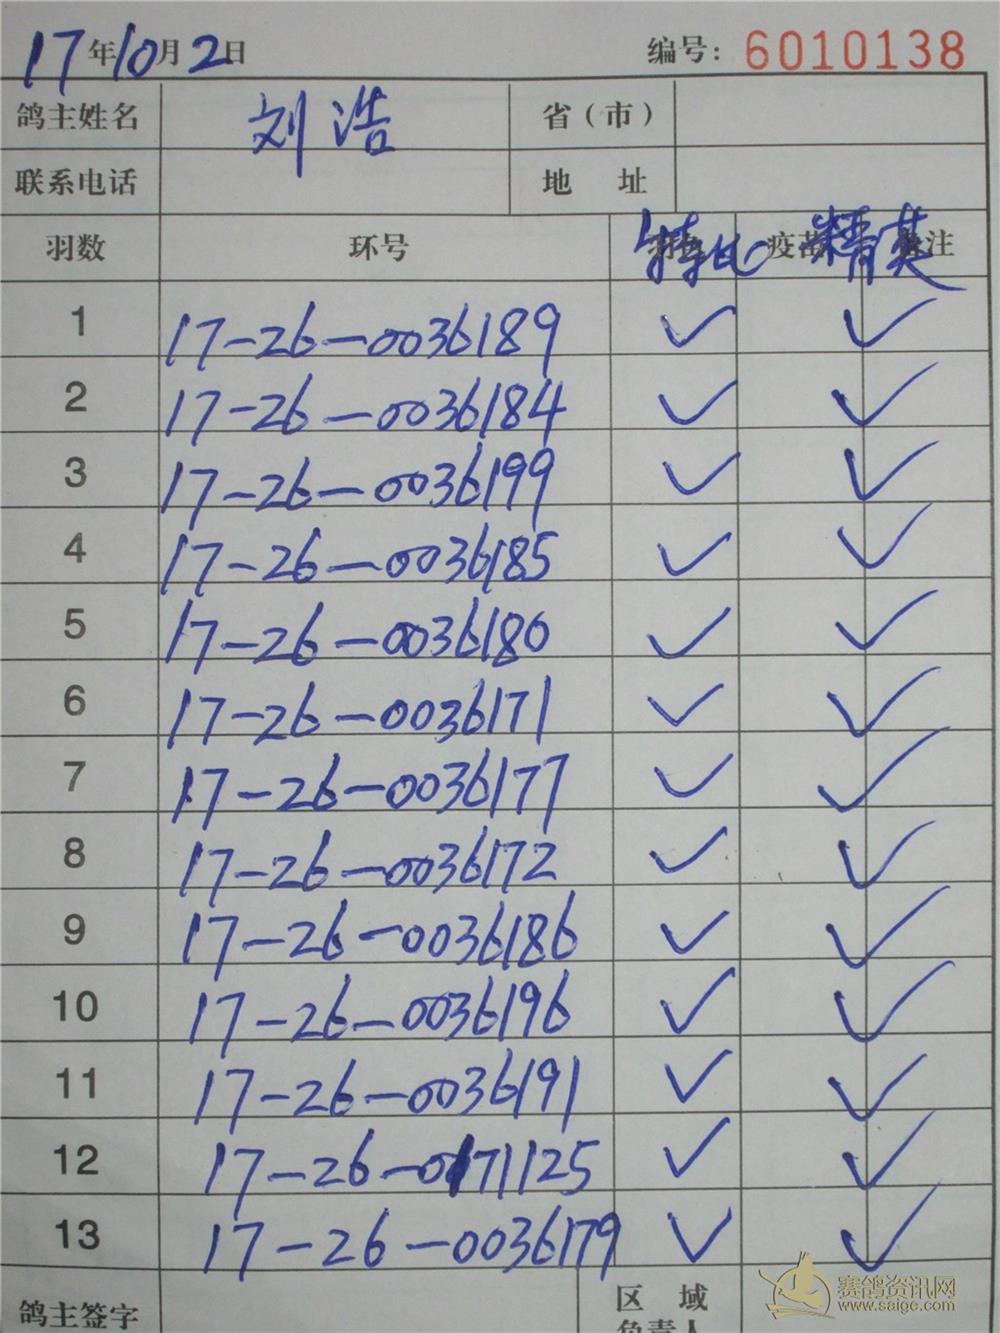 17年10月2日 编号：6010138
鸽主姓名 刘浩 省（市）
联系电话 地 址
羽数 环号 特比 疫苗 精英 备注
1 17-26-0036189 ✓ ✓
2 17-26-0036184 ✓ ✓
3 17-26-0036199 ✓ ✓
4 17-26-0036185 ✓ ✓
5 17-26-0036180 ✓ ✓
6 17-26-0036171 ✓ ✓
7 17-26-0036177 ✓ ✓
8 17-26-0036172 ✓ ✓
9 17-26-0036186 ✓ ✓
10 17-26-0036196 ✓ ✓
11 17-26-0036191 ✓ ✓
12 17-26-0171125 ✓ ✓
13 17-26-0036179 ✓ ✓
鸽主签字 区 域
负责人
赛鸽资讯网
www.saige.com